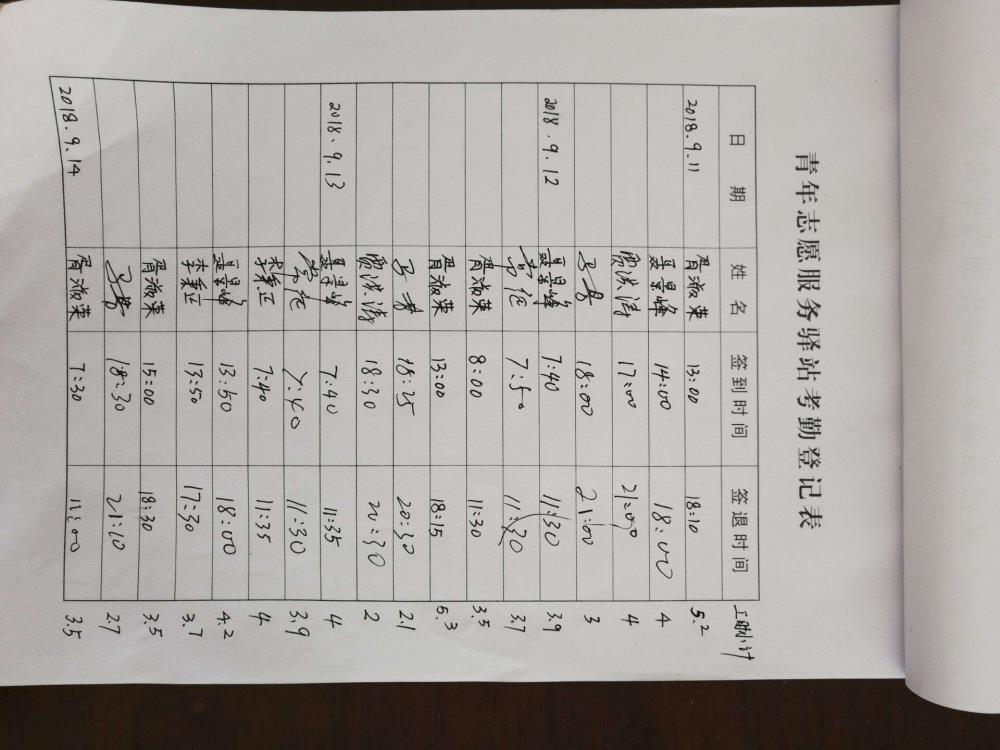 青年志愿服务驿站考勤登记表
日 期 姓 名 签到时间 签退时间 工时小计
2018.9.11 胥淑荣 13:00 18:10 5.2
聂景峰 14:00 18:00 4
贾洪涛 17:00 21:00 4
18:00 21:00 3
2018.9.12 聂景峰 7:40 11:30 3.9
7:50 11:30 3.7
胥淑荣 8:00 11:30 3.5
胥淑荣 13:00 18:15 5.3
18:25 20:30 2.1
贾洪涛 18:30 20:30 2
2018.9.13 聂景峰 7:40 11:35 4
7:40 11:30 3.9
李秉正 7:40 11:35 4
聂景峰 13:50 18:00 4.2
李秉正 13:50 17:30 3.7
胥淑荣 15:00 18:30 3.5
18:30 21:10 2.7
2018.9.14 胥淑荣 7:30 11:00 3.5